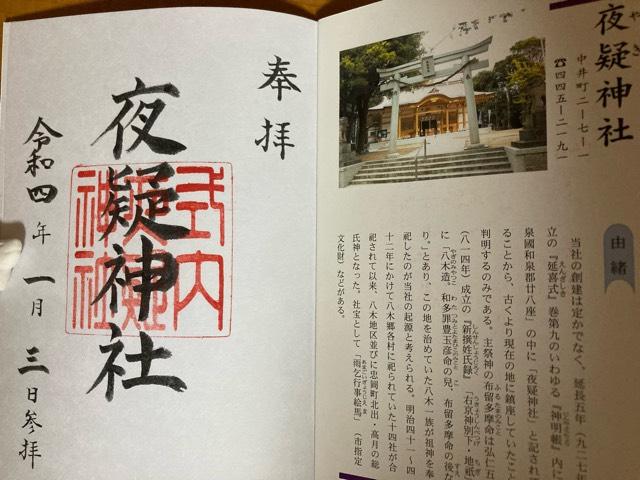 夜疑神社
やぎ
中井町二-七-一
☎四四五-二一九一
由緒
当社の創建は定かでなく、延長五年（九二七年
立の『延喜式』巻第九のいわゆる『神明帳』内に
えんぎしき
泉國和泉郡廿八座」の中に「夜疑神社」と記されて
ることから、古くより現在の地に鎮座していたこと
判明するのみである。主祭神の布留多摩命は弘仁五
ふるたまのみこと
（八一四年）成立の『新撰姓氏録』「右京神別下・地祇
しんせんしょうじろく
うきょうしんべつげ
ちぎ
に「八木造、和多罪豊玉彦命の兒、布留多摩命の後な
やぎのみやつこ
り。」とあり、この地を治めていた八木一族が祖神を奉
祀したのが当社の起源と考えられる。明治四十一～四
十二年にかけて八木郷各村に祀られていた十四社が合
祀されて以来、八木地区並びに忠岡町北出・高月の総
氏神となった。社宝として「雨乞行事絵馬」（市指定
文化財）などがある。
奉拝
夜疑神社
式内
夜疑
神社
令和四年一月三日参拝